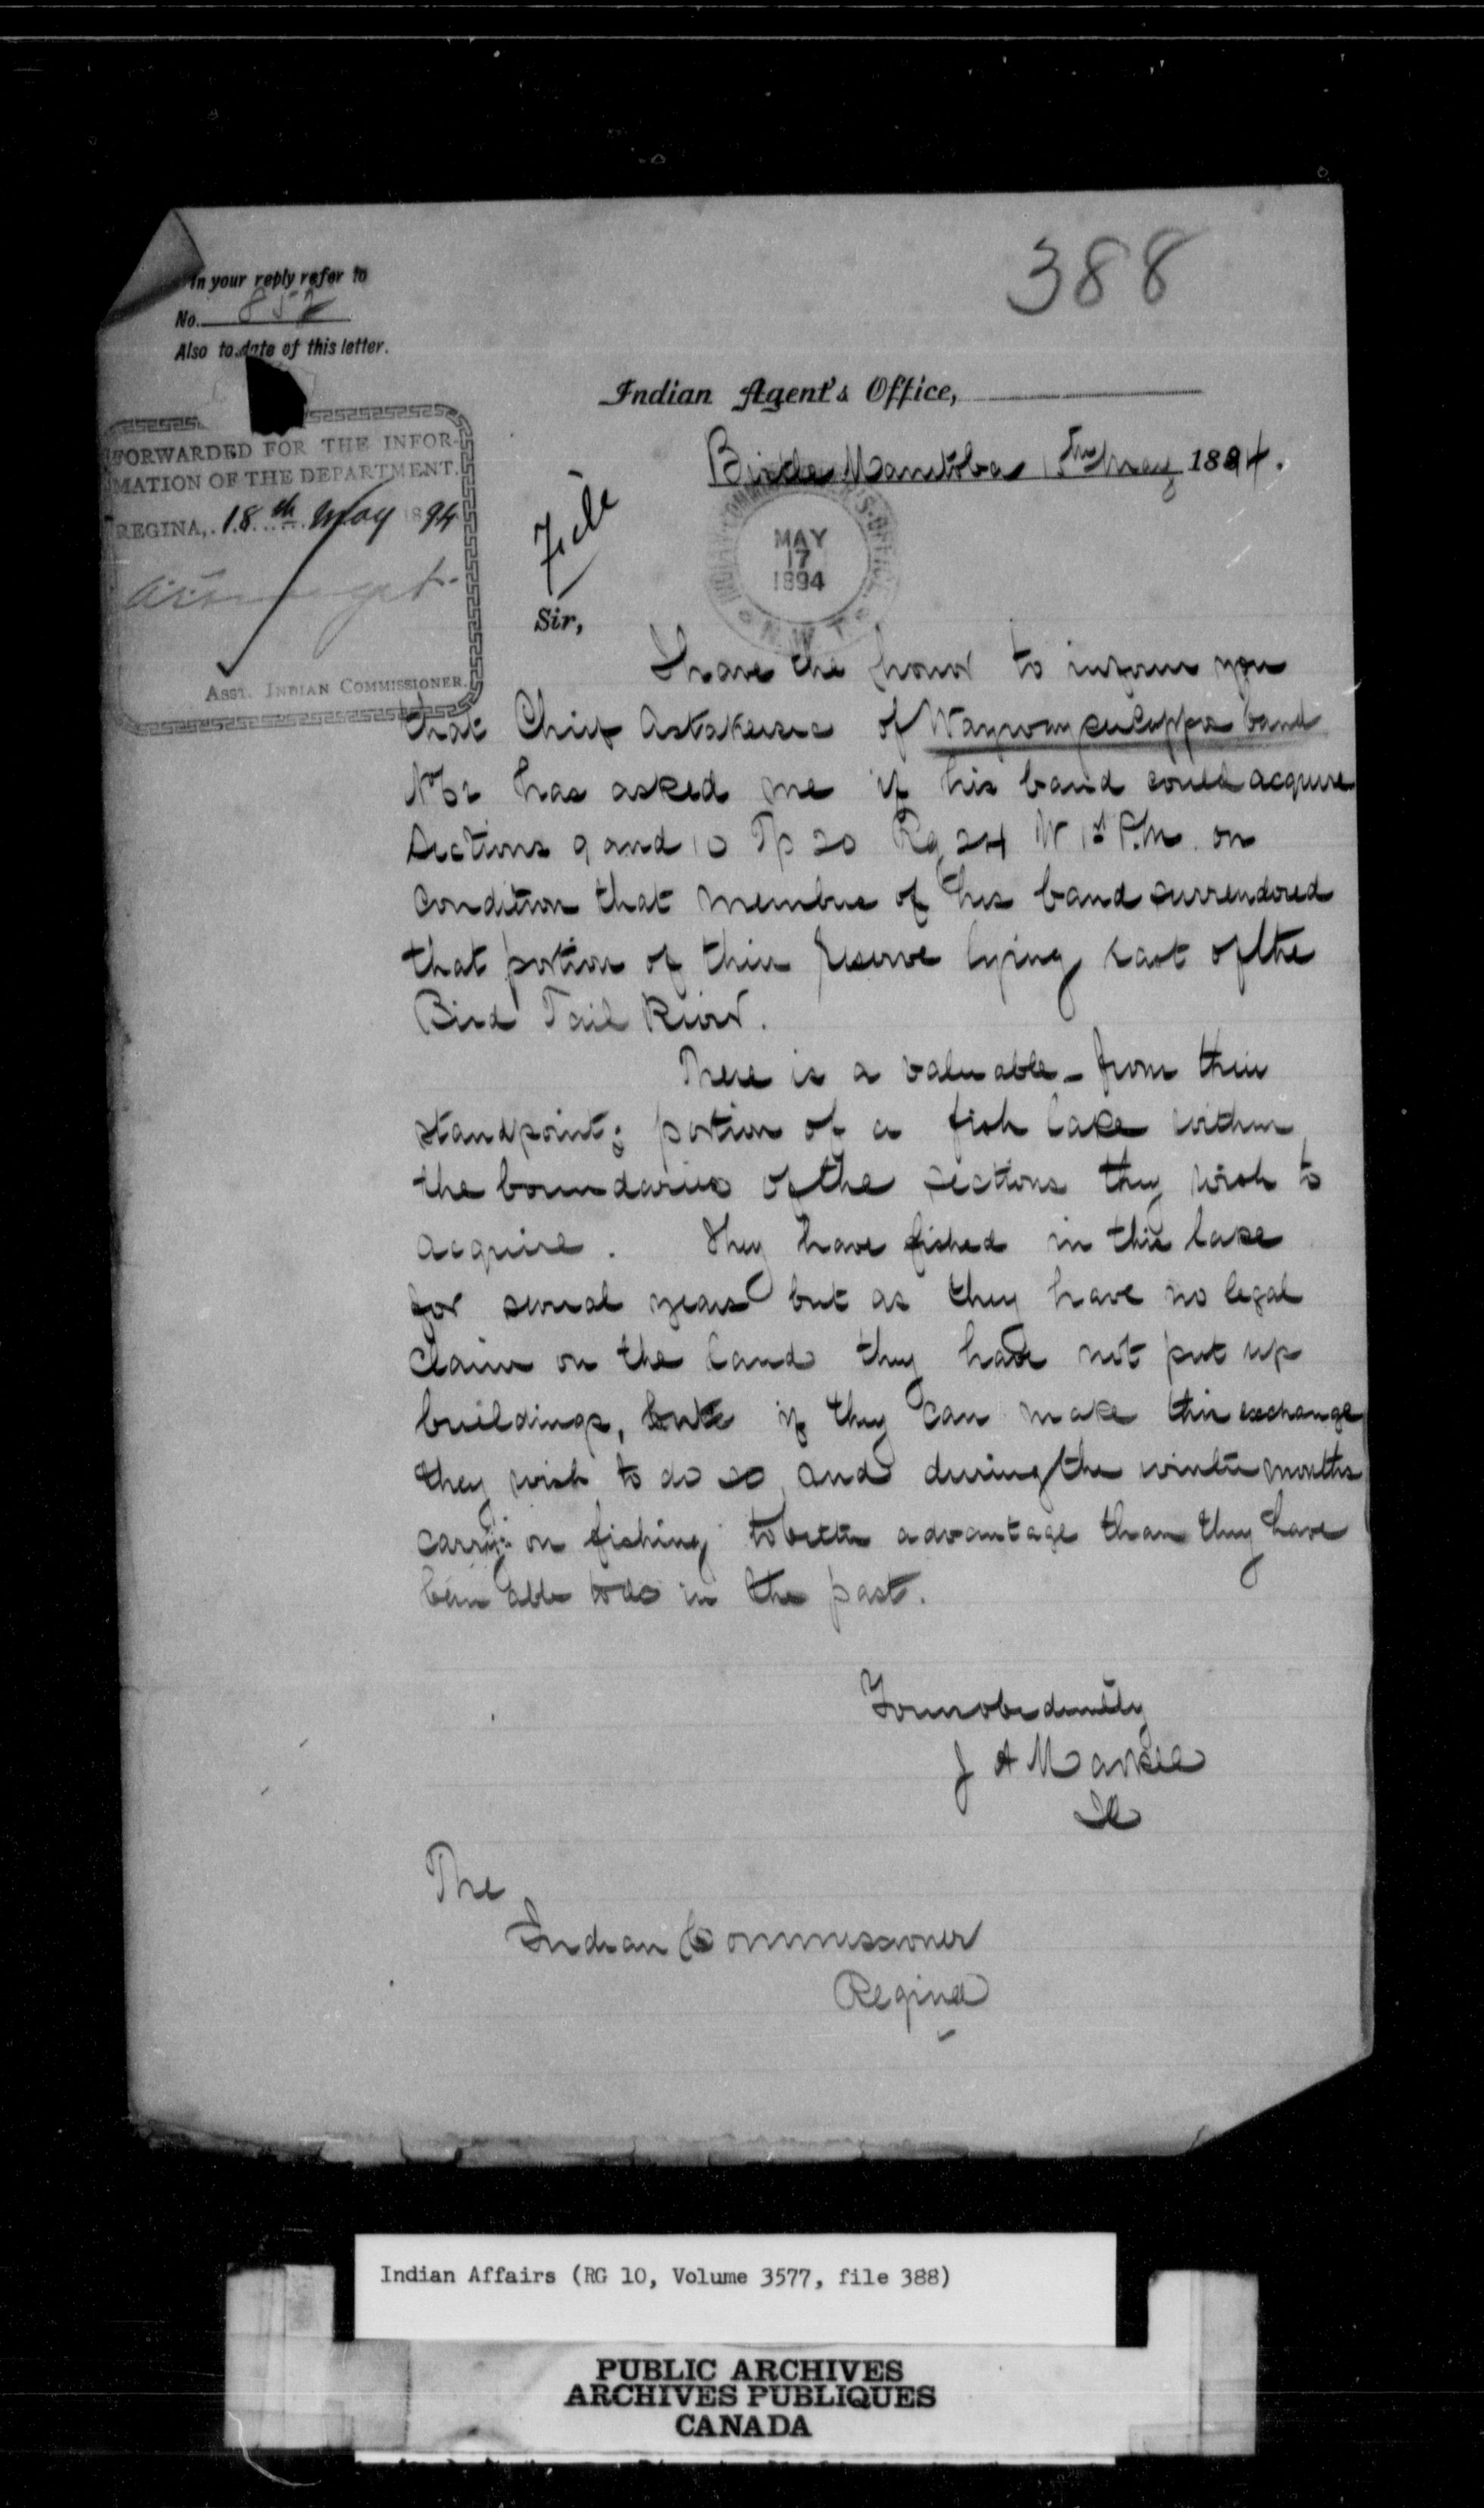 388
In your reply refer to
No. 852
Also to date of this letter.
Indian Agent's Office,
Birtle Manitoba 15th May 1894.
FORWARDED FOR THE INFOR-
MATION OF THE DEPARTMENT.
REGINA, 18th May 1894
ASST. INDIAN COMMISSIONER.
File
INDIAN COMMISSIONER'S OFFICE
MAY
17
1894
N.W.T.
Sir,
I have the honor to inform you
that Chief Astakeesic of Waywayseecappo band
No 62 has asked me if his band could acquire
Sections 9 and 10 Tp 20 Rg 24 W 1st P.M. on
condition that members of his band surrendored
that portion of their reserve lying east of the
Bird Tail River.
There is a valuable - from their
standpoint; portion of a fish lake within
the boundaries of the sections they wish to
acquire. They have fished in this lake
for several years but as they have no legal
claim on the land they have not put up
buildings, but if they can make this exchange
they wish to do so and during the winter months
carry on fishing to better advantage than they have
been able to do in the past.
Your obediently
J A Markle
IA
The
Indian Commissioner
Regina
Indian Affairs (RG 10, Volume 3577, file 388)
PUBLIC ARCHIVES
ARCHIVES PUBLIQUES
CANADA